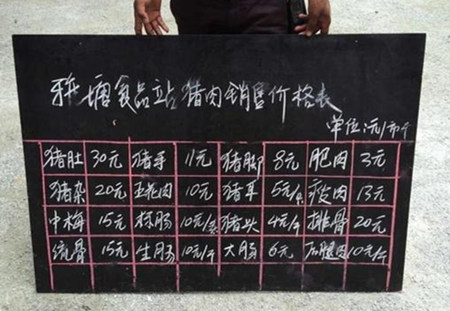 雅塘食品站猪肉销售价格表
单位:元/市斤
猪肚 30元 猪手 11元 猪脚 8元 肥肉 3元
猪杂 20元 五花肉 10元 猪耳 5元/只 瘦肉 13元
中梅 15元 粉肠 10元/套 猪头 4元/斤 排骨 20元
统骨 15元 生肠 10元/斤 大肠 6元 加腿肉 10元/斤